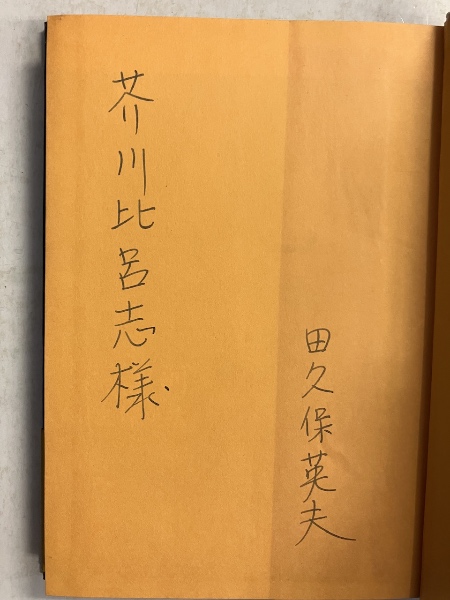 芥川比呂志様
田久保英夫